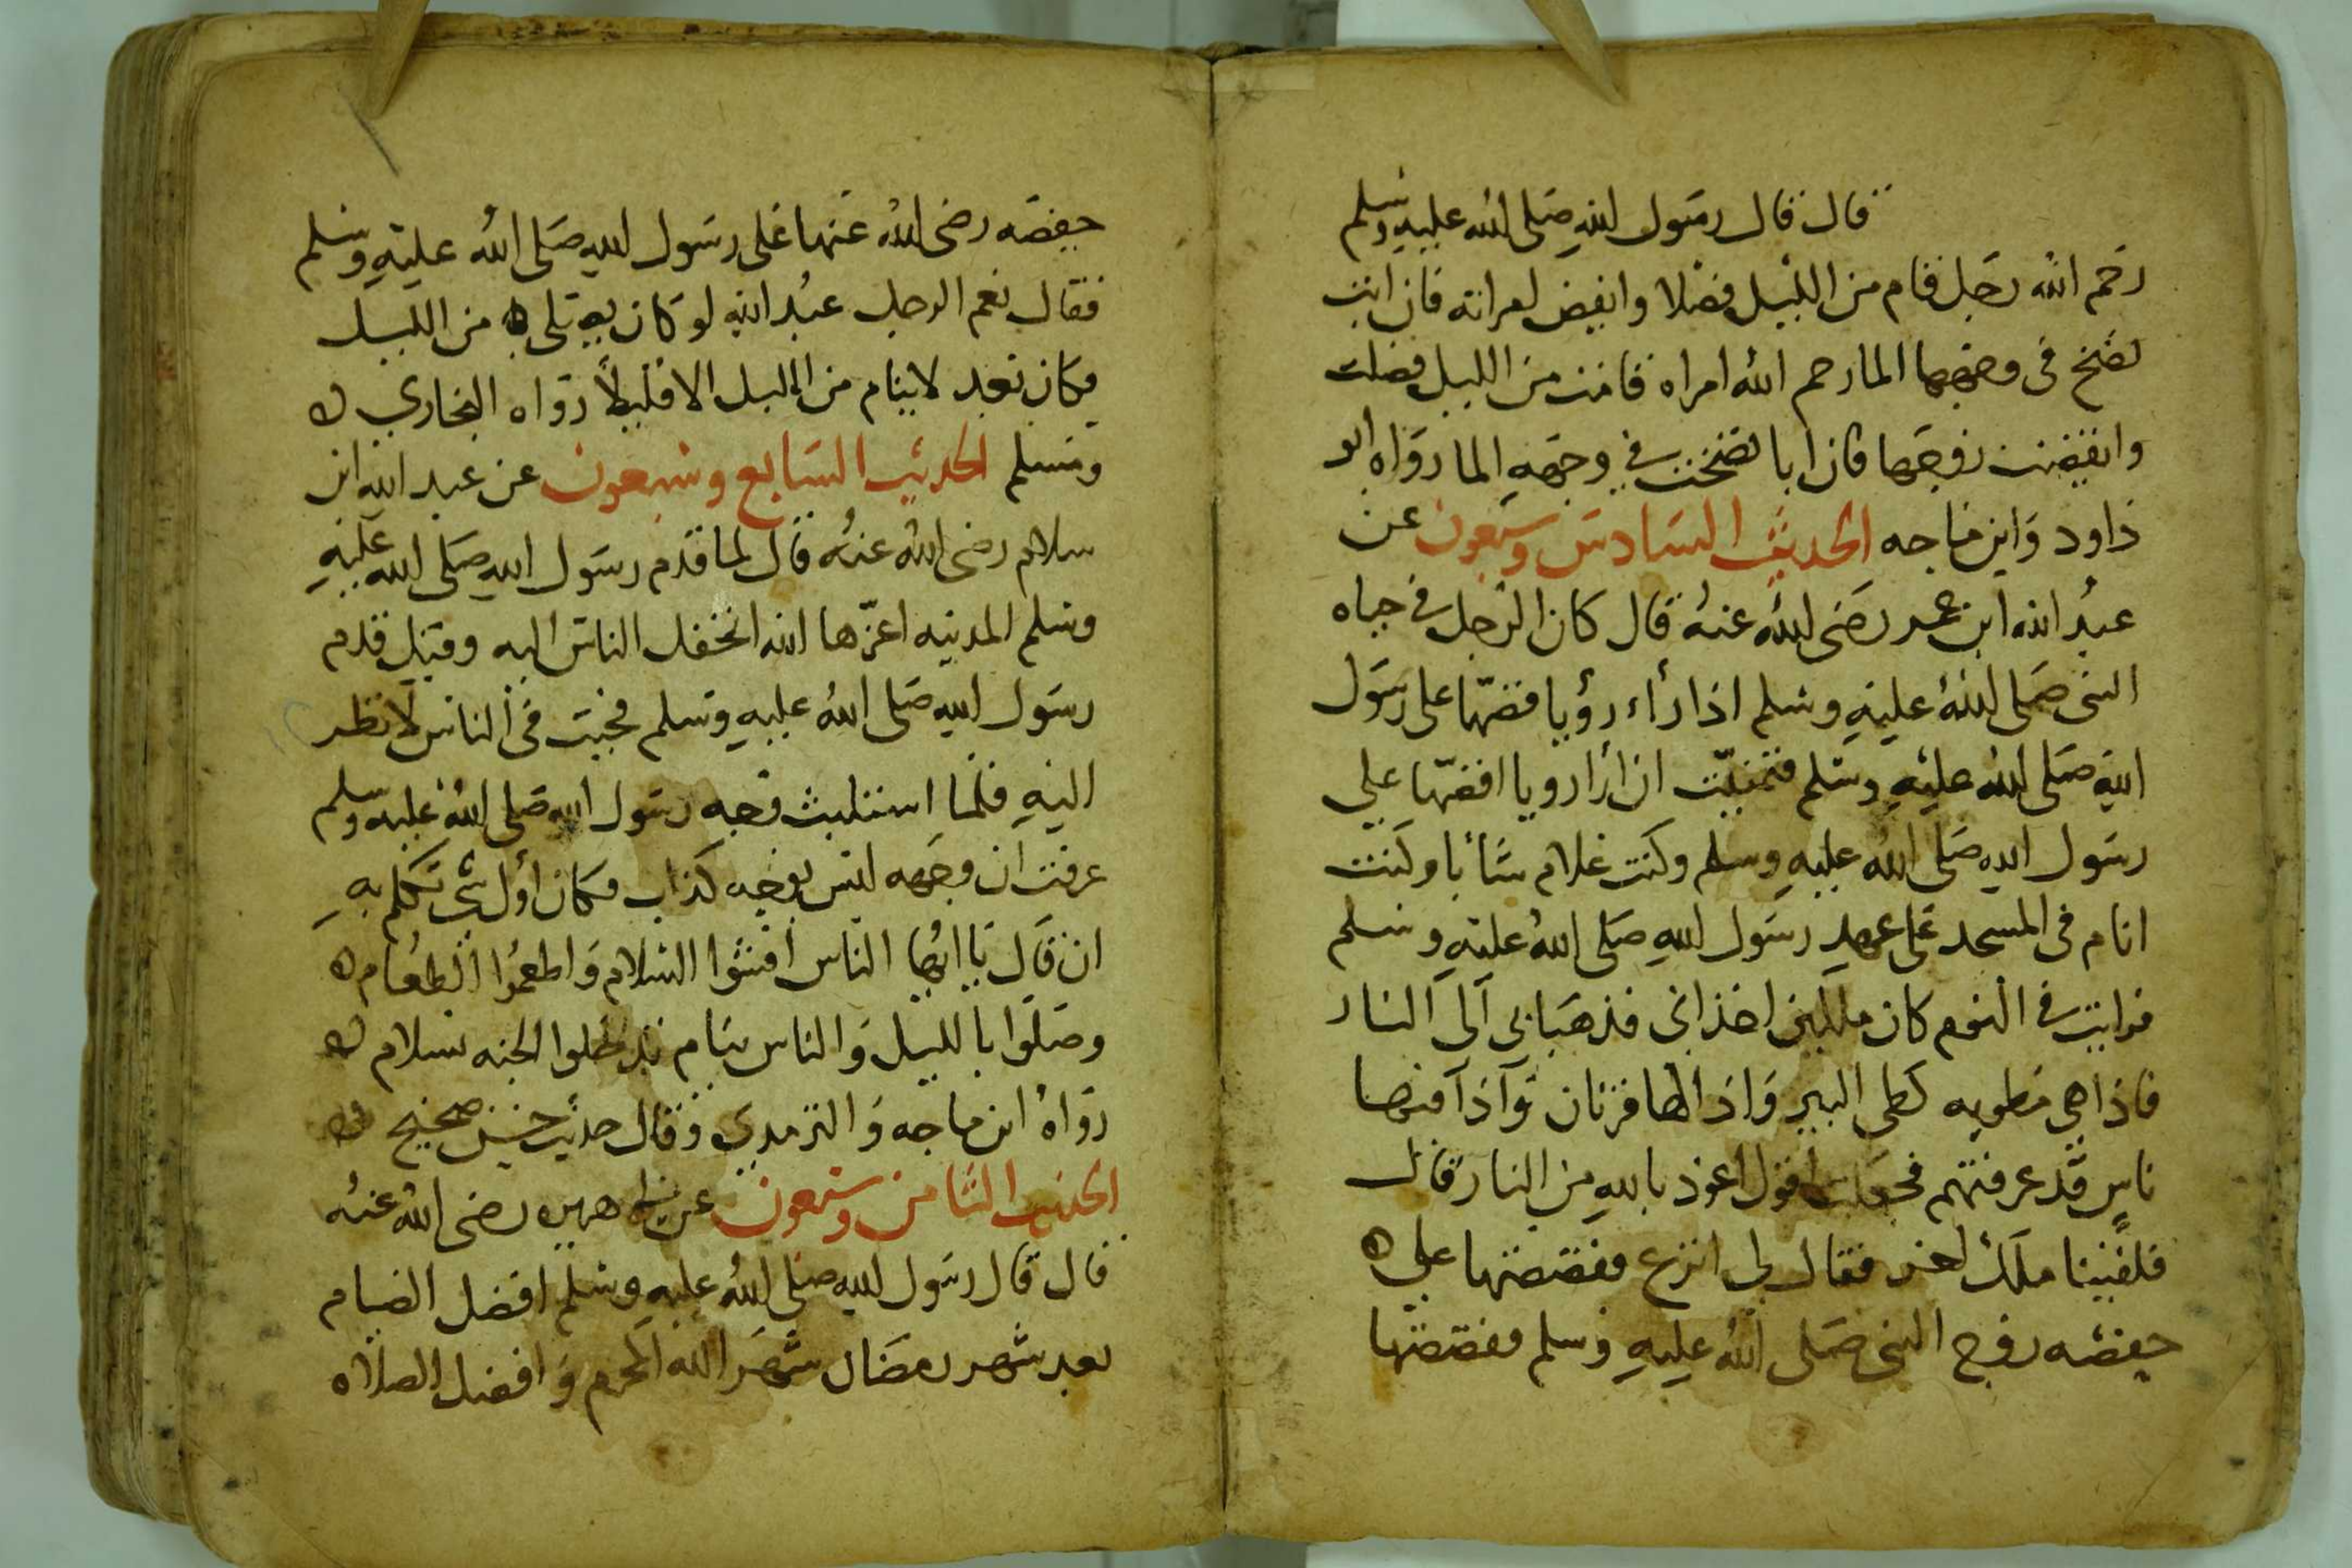 قال قال رسول الله صلى الله عليه وسلم
رحم الله رجل قام من الليل فضلا وايقض لمراته فان ابت
نضخ في وجهها الما رحم الله امراه قامت من الليل فصلت
وايقضت زوجها فان ابا نضخت في وجهه الما رواه ابو
داود وابن ماجه الحديث السادس وسبعون عن
عبد الله ابن عمر رضي الله عنه قال كان الرجل في حياه
النبي صلى الله عليه وسلم اذا رأء رؤيا قصّها على رسول
الله صلى الله عليه وسلم فتمنيّت ان أرا رويا اقصّها علي
رسول الله صلى الله عليه وسلم وكنت غلام شأبا وكنت
انام في المسجد على عهد رسول الله صلى الله عليه وسلم
فرايت في النوم كان ملكين اخذاني فذهبا بي الى النار
فاذا هي مطويه كطي البير واذا لها قرنان وآذا فيها
ناس قد عرفتهم فجعلت اقول اعوذ بالله من النار قال
فلقينا ملك اخر فقال لي انزع فقصصتها علي ه
حفصه زوج النبي صلى الله عليه وسلم فقصصتها
حفصه رضي الله عنها على رسول الله صلى الله عليه وسلم
فقال نعم الرجل عبد الله لو كان يصلى من الليل
فكان بعد لا ينام من الليل الا قليلاً رواه البخاري ه
ومسلم الحديث السابع وسبعون عن عبد الله ابن
سلام رضي الله عنه قال لما قدم رسول الله صلى الله عليه
وسلم المدينه اعزّها الله انجفل الناس اليه وقيل قدم
رسول الله صلى الله عليه وسلم فجيت في الناس لانظر
اليه فلما استثبت وجه رسول الله صلى الله عليه وسلم
عرفت ان وجهه ليس بوجه كذاب فكان أول شي تكلم به
ان قال يا ايها الناس افشوا السلام واطعموا الطعام ه
وصلوا بالليل والناس نيام تدخلوا الجنه بسلام ه
رواه ابن ماجه والترمدي وقال حديث حسن صحيح ه
الحديث الثامن وسبعون عن ابي هريره رضي الله عنه
قال قال رسول الله صلى الله عليه وسلم افضل الصيام
بعد شهر رمضان شهر الله المحرم وافضل الصلاه